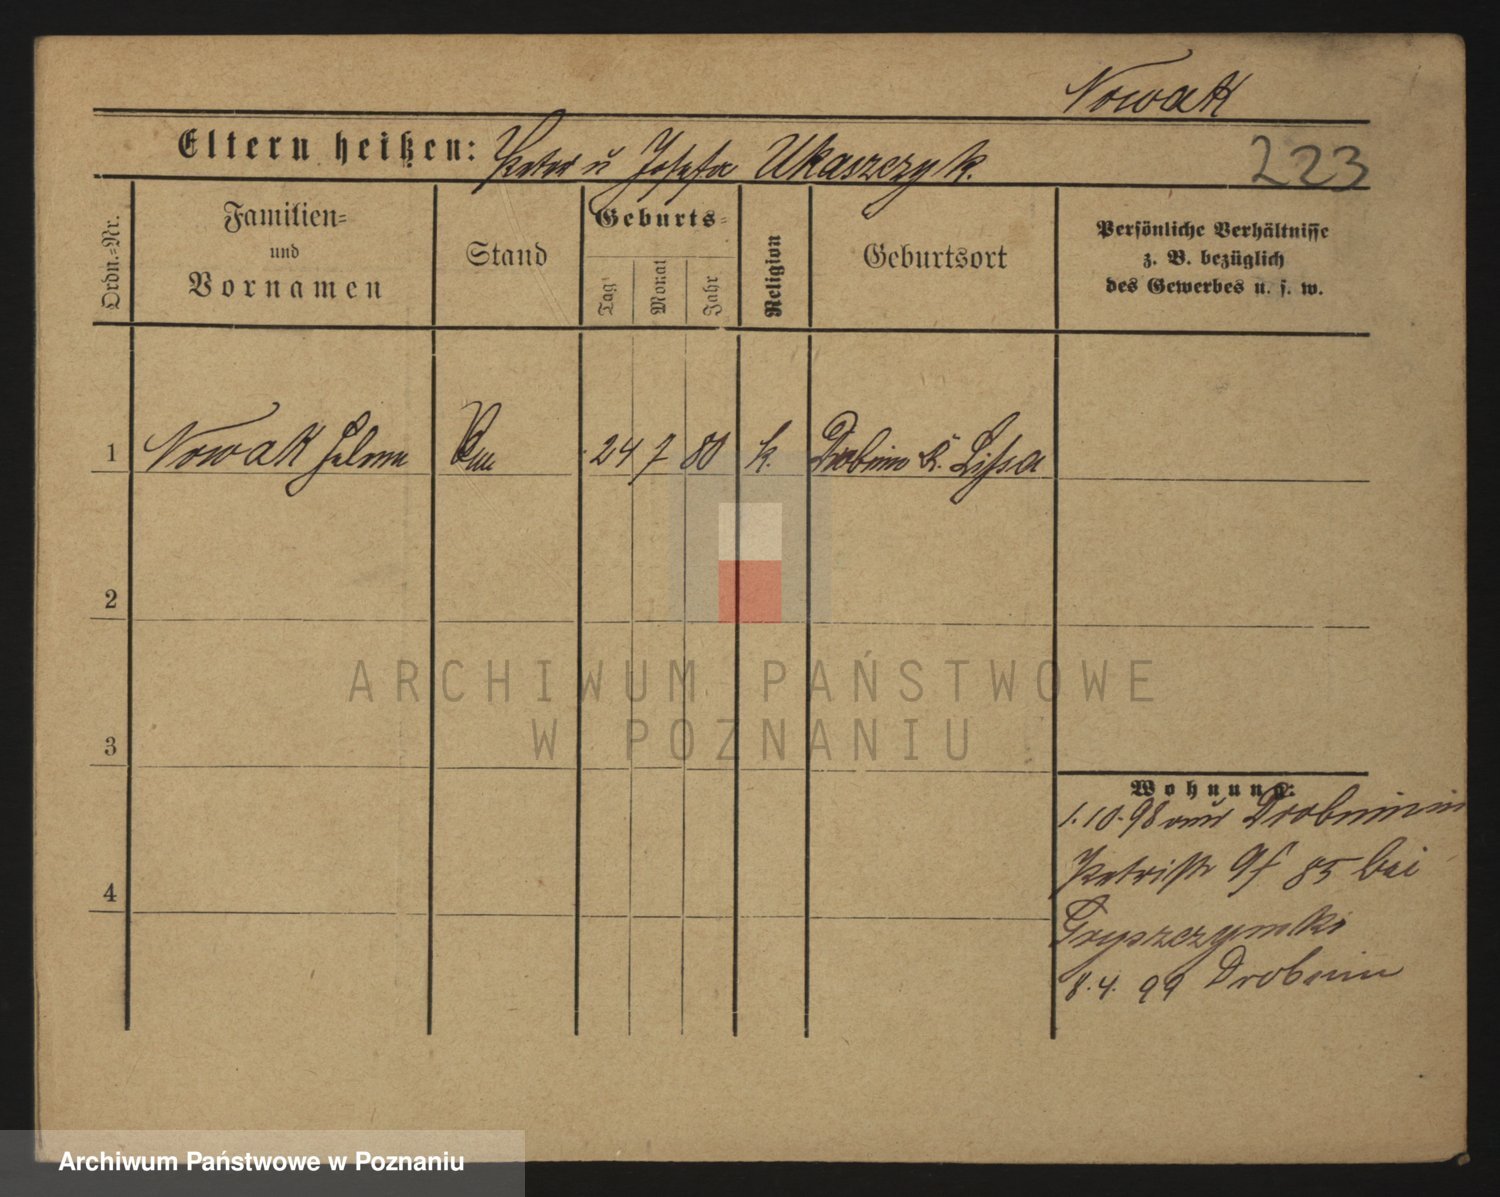 Nowak
Eltern heißen: Peter u Josefa Ukaszczyk.
223
Ordn.-Nr.
Familien-
und
Vornamen
Stand
Geburts-
Tag
Monat
Jahr
Religion
Geburtsort
Persönliche Verhältnisse
z. B. bezüglich
des Gewerbes u. s. w.
1 Nowak 24 7 80 k. K. Lissa
2
3
4
Wohnung:
1.10.98 aus
Petristr 85 bei
8.4.99 Drobnin
ARCHIWUM PAŃSTWOWE
W POZNANIU
Archiwum Państwowe w Poznaniu